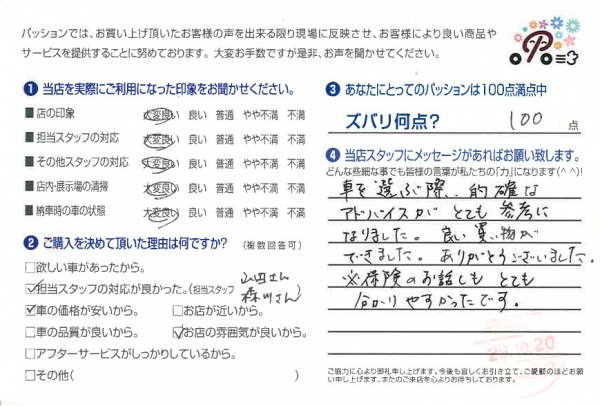 パッションでは、お買い上げ頂いたお客様の声を出来る限り現場に反映させ、お客様により良い商品や
サービスを提供することに努めております。大変お手数ですが是非、お声を聞かせてください。
P
1 当店を実際にご利用になった印象をお聞かせください。
■店の印象 大変良い 良い 普通 やや不満 不満
■担当スタッフの対応 大変良い 良い 普通 やや不満 不満
■その他スタッフの対応 大変良い 良い 普通 やや不満 不満
■店内・展示場の清掃 大変良い 良い 普通 やや不満 不満
■納車時の車の状態 大変良い 良い 普通 やや不満 不満
2 ご購入を決めて頂いた理由は何ですか? (複数回答可)
□欲しい車があったから。
☑担当スタッフの対応が良かった。(担当スタッフ 山田さん
森川さん
☑車の価格が安いから。 □お店が近いから。
□車の品質が良いから。 ☑お店の雰囲気が良いから。
□アフターサービスがしっかりしているから。
□その他( )
3 あなたにとってのパッションは100点満点中
ズバリ何点? 100 点
4 当店スタッフにメッセージがあればお願い致します。
どんな些細な事でも皆様の言葉が私たちの「力」になります(^^)!
車を選ぶ際、的確な
アドバイスが とても 参考に
なりました。良い 買い物が
できました。ありがとうございました。
※保険のお話しも とても
分かりやすかったです。
29.10.20
ご協力に心より御礼申し上げます。今後も宜しくお引き立て、ご愛顧のほどお願
い申し上げます。またのご来店を心よりお待ちしております。